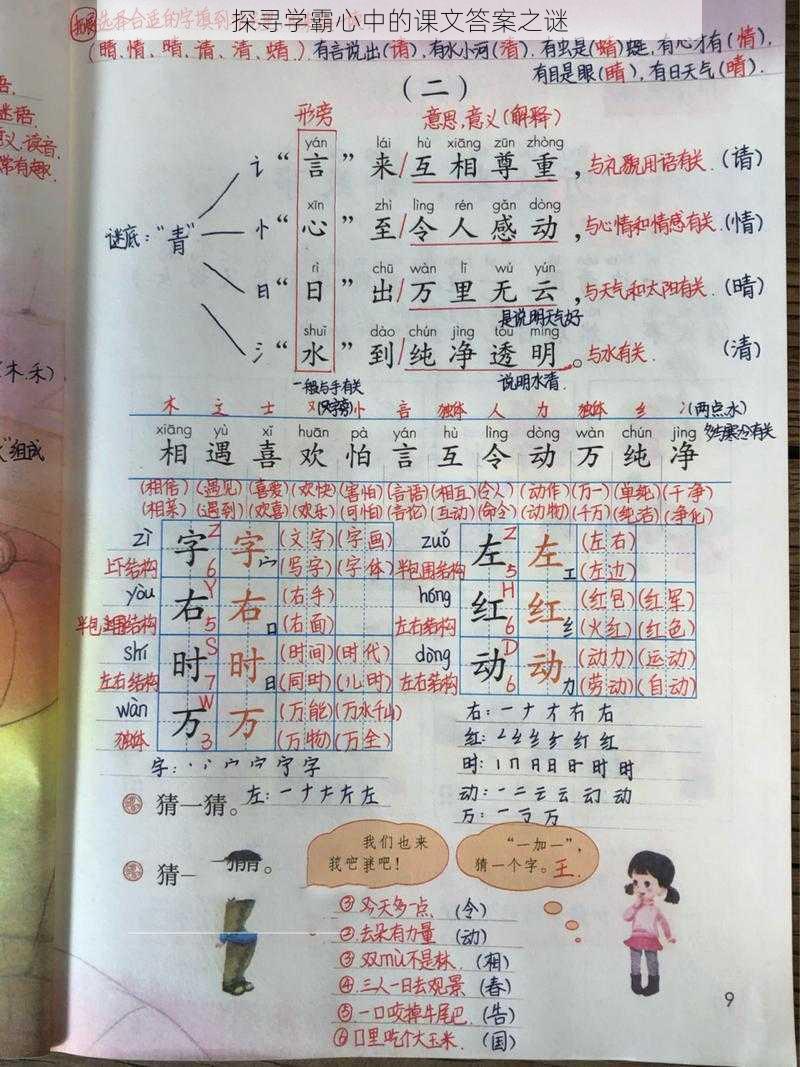 探寻学霸心中的课文答案之谜
(睛、情、晴、请、清、蜻) 有言说出(请),有水小河(清).有虫是(蜻)蜓,有心才有(情),
有目是眼(睛),有日天气(晴).
语.
谜语
义、读音,
常有趣.
(二)
形旁 意思,意义(解释)
yán lái hù xiāng zūn zhòng
讠“言”来/互相尊重,与礼貌用语有关.(请)
xīn zhì lìng rén gǎn dòng
谜底:“青” 忄“心”至/令人感动,与心情和情感有关.(情)
rì chū wàn lǐ wú yún
日“日”出/万里无云,与天气和太阳有关.(晴)
是说明天气好
shuǐ dào chún jìng tòu míng
氵“水”到/纯净透明。与水有关.(清)
说明水清.
木.禾)
"组成
一般与手有关
木 辶 士 又(又字旁) 忄 言 独体 人 力 独体 纟 冫(两点水)
多与寒冷有关
xiāng yù xǐ huān pà yán hù lìng dòng wàn chún jìng
相遇喜欢怕言互令动万纯净
(相信)(遇见)(喜爱)(欢快)(害怕)(言语)(相互)(令人)(动作)(万一)(单纯)(干净)
(相菜)(遇到)(欢喜)(欢乐)(可怕)(言论)(互动)(命令)(动物)(千万)(纯洁)(净化)
zì 字 Z 6 字 宀 (文字)(字画)
上下结构 (写字)(字体)
yòu 右 Y 5 右 口 (右手)
半包围结构 (右面)
shí 时 S 7 时 日 (时间)(时代)
左右结构 (同时)(儿时)
wàn 万 W 3 万 (万能)(万水千山)
独体 (万物)(万全)
zuǒ 左 Z 5 左 工 (左右)
半包围结构 (左边)
hóng 红 H 6 红 纟 (红包)(红军)
左右结构 (火红)(红色)
dòng 动 D 6 动 力 (动力)(运动)
左右结构 (劳动)(自动)
猜一猜。
猜一
我们也来
“一加一”,
猜一个字。王.
③ 今天多一点. (令)
② 去朵有力量 (动)
③ 双mù不是林. (相)
④ 三人一日去观景 (春)
⑤ 一口咬掉牛尾巴 (告)
⑥ 口里吃个大玉米. (国)
9